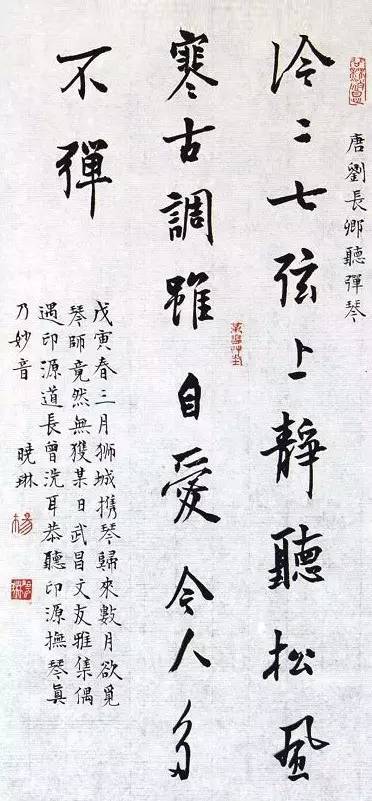 唐劉長卿聽彈琴
泠〻七弦上靜聽松風
寒古調雖自愛今人多
不彈
戊寅春三月狮城携琴歸來數月欲覓
琴師竟然無獲某日武昌文友雅集偶
遇印源道長曾洗耳恭聽印源撫琴眞
乃妙音 曉琳
楊